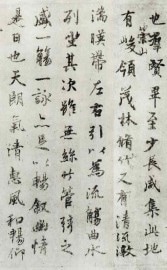 也羣賢畢至少長咸集此地
有崇山峻領茂林脩竹又有清流激
湍暎帶左右引以為流觴曲水
列坐其次雖無絲竹管弦之
盛一觴一詠亦足以暢敘幽情
是日也天朗氣清惠風和暢仰